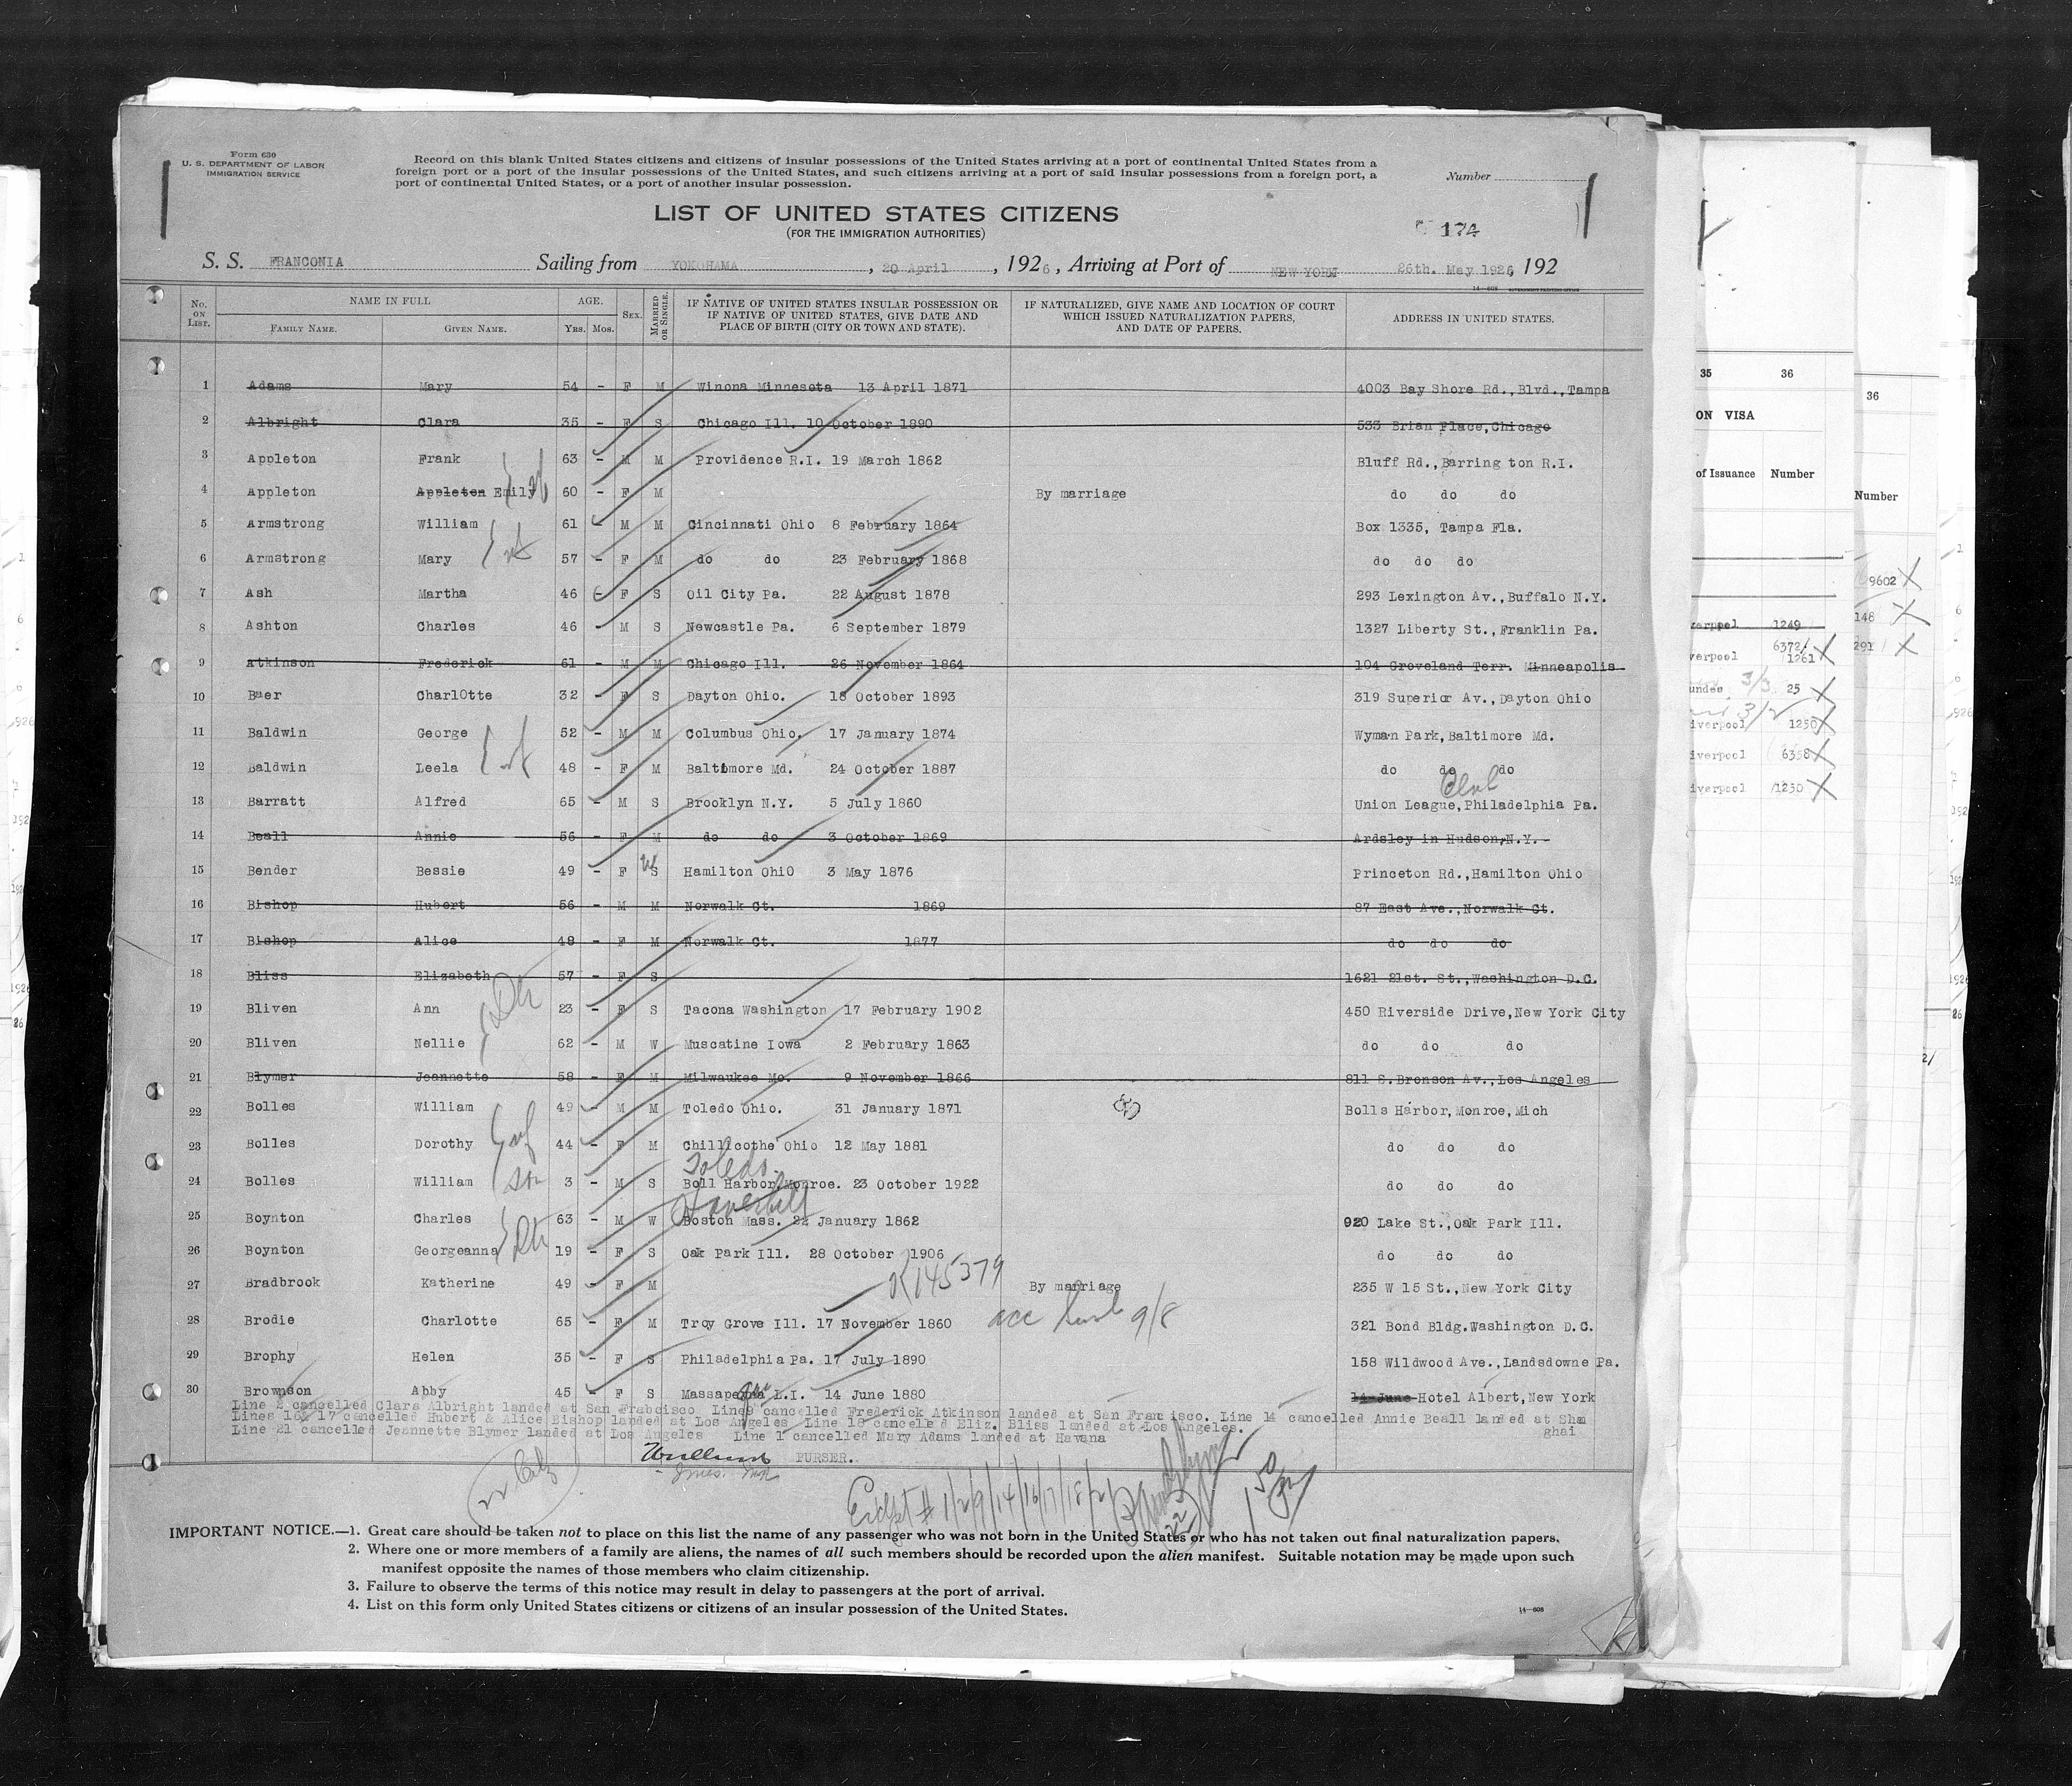 Form 630
U. S. DEPARTMENT OF LABOR
IMMIGRATION SERVICE
Record on this blank United States citizens and citizens of insular possessions of the United States arriving at a port of continental United States from a
foreign port or a port of the insular possessions of the United States, and such citizens arriving at a port of said insular possessions from a foreign port, a
port of continental United States, or a port of another insular possession.
Number
LIST OF UNITED STATES CITIZENS
(FOR THE IMMIGRATION AUTHORITIES)
174
S. S. FRANCONIA Sailing from YOKOHAMA, 20 April, 1926, Arriving at Port of NEW YORK 26th. May 1926, 192
No. ON LIST. NAME IN FULL FAMILY NAME. GIVEN NAME. AGE. Yrs. Mos. SEX. MARRIED OR SINGLE. IF NATIVE OF UNITED STATES INSULAR POSSESSION OR IF NATIVE OF UNITED STATES, GIVE DATE AND PLACE OF BIRTH (CITY OR TOWN AND STATE). IF NATURALIZED, GIVE NAME AND LOCATION OF COURT WHICH ISSUED NATURALIZATION PAPERS, AND DATE OF PAPERS. ADDRESS IN UNITED STATES.
1 Adams Mary 54 - F M Winona Minnesota 13 April 1871 4003 Bay Shore Rd.,Blvd.,Tampa
2 Albright Clara 35 - F S Chicago Ill. 10 October 1890 533 Brian Place,Chicago
3 Appleton Frank 63 - M M Providence R.I. 19 March 1862 Bluff Rd.,Barring ton R.I.
4 Appleton Appleton Emily wf 60 - F M By marriage do do do
5 Armstrong William 61 - M M Cincinnati Ohio 8 February 1864 Box 1335, Tampa Fla.
6 Armstrong Mary wf 57 - F M do do 23 February 1868 do do do
7 Ash Martha 46 6 F S Oil City Pa. 22 August 1878 293 Lexington Av.,Buffalo N.Y.
8 Ashton Charles 46 - M S Newcastle Pa. 6 September 1879 1327 Liberty St.,Franklin Pa.
9 Atkinson Frederick 61 - M M Chicago Ill. 26 November 1864 104 Groveland Terr. Minneapolis
10 Baer CharlOtte 32 - F S Dayton Ohio. 18 October 1893 319 Superior Av.,Dayton Ohio
11 Baldwin George 52 - M M Columbus Ohio. 17 January 1874 Wyman Park,Baltimore Md.
12 Baldwin Leela wf 48 - F M Baltimore Md. 24 October 1887 do do do
Club
13 Barratt Alfred 65 - M S Brooklyn N.Y. 5 July 1860 Union League,Philadelphia Pa.
14 Beall Annie 56 - F M do do 3 October 1869 Ardsley in Hudson,N.Y.
15 Bender Bessie 49 - F S Hamilton OhiO 3 May 1876 Princeton Rd.,Hamilton Ohio
16 Bishop Hubert 56 - M M Norwalk Ct. 1869 87 East Ave.,Norwalk Ct.
17 Bishop Alice 48 - F M Norwalk Ct. 1877 do do do
18 Bliss Elizabeth 57 - F S 1621 21st. St.,Washington D.C.
19 Bliven Ann 23 - F S Tacona Washington 17 February 1902 450 Riverside Drive,New York City
20 Bliven Nellie 62 - M W Muscatine Iowa 2 February 1863 do do do
21 Blymer Jeannette 58 - F M Milwaukee Mo. 9 November 1866 811 S.Bronson Av.,Los Angeles
22 Bolles William 49 - M M Toledo Ohio. 31 January 1871 Bolls Harbor,Monroe,Mich
23 Bolles Dorothy wf 44 - F M Chillicothe Ohio 12 May 1881 do do do
Toledo
24 Bolles William son 3 - M S Boll Harbor,Monroe. 23 October 1922 do do do
Haverhill
25 Boynton Charles 63 - M W Boston Mass. 22 January 1862 920 Lake St.,Oak Park Ill.
26 Boynton Georgeanna 19 - F S Oak Park Ill. 28 October 1906 do do do
K145379
27 Bradbrook Katherine 49 - F M By marriage 235 W 15 St.,New York City
28 Brodie Charlotte 65 - F M Troy Grove Ill. 17 November 1860 321 Bond Bldg.Washington D.C.
29 Brophy Helen 35 - F S Philadelphia Pa. 17 July 1890 158 Wildwood Ave.,Landsdowne Pa.
30 Brownson Abby 45 - F S L.I. 14 June 1880 14 June Hotel Albert,New York
Line 2 cancelled Clara Albright landed at San Frabcisco Line9 cancelled Frederick Atkinson landed at San Francisco. Line 14 cancelled Annie Beall landed at Shan
Lines 16& 17 cancelled Hubert & Alice Bishop landed at Los Angeles Line 18 cancelled Eliz. Bliss landed at Los Angeles. ghai
Line 21 cancelled Jeannette Blymer landed at Los Angeles Line 1 cancelled Mary Adams landed at Havana
PURSER.
IMPORTANT NOTICE.—1. Great care should be taken not to place on this list the name of any passenger who was not born in the United States or who has not taken out final naturalization papers.
2. Where one or more members of a family are aliens, the names of all such members should be recorded upon the alien manifest. Suitable notation may be made upon such
manifest opposite the names of those members who claim citizenship.
3. Failure to observe the terms of this notice may result in delay to passengers at the port of arrival.
4. List on this form only United States citizens or citizens of an insular possession of the United States.
14—608
35 36
ON VISA
of Issuance Number
1249
6372/
verpool 1261
25
iverpool 1250
iverpool 6358
iverpool 1250
36
Number
9602
148
291